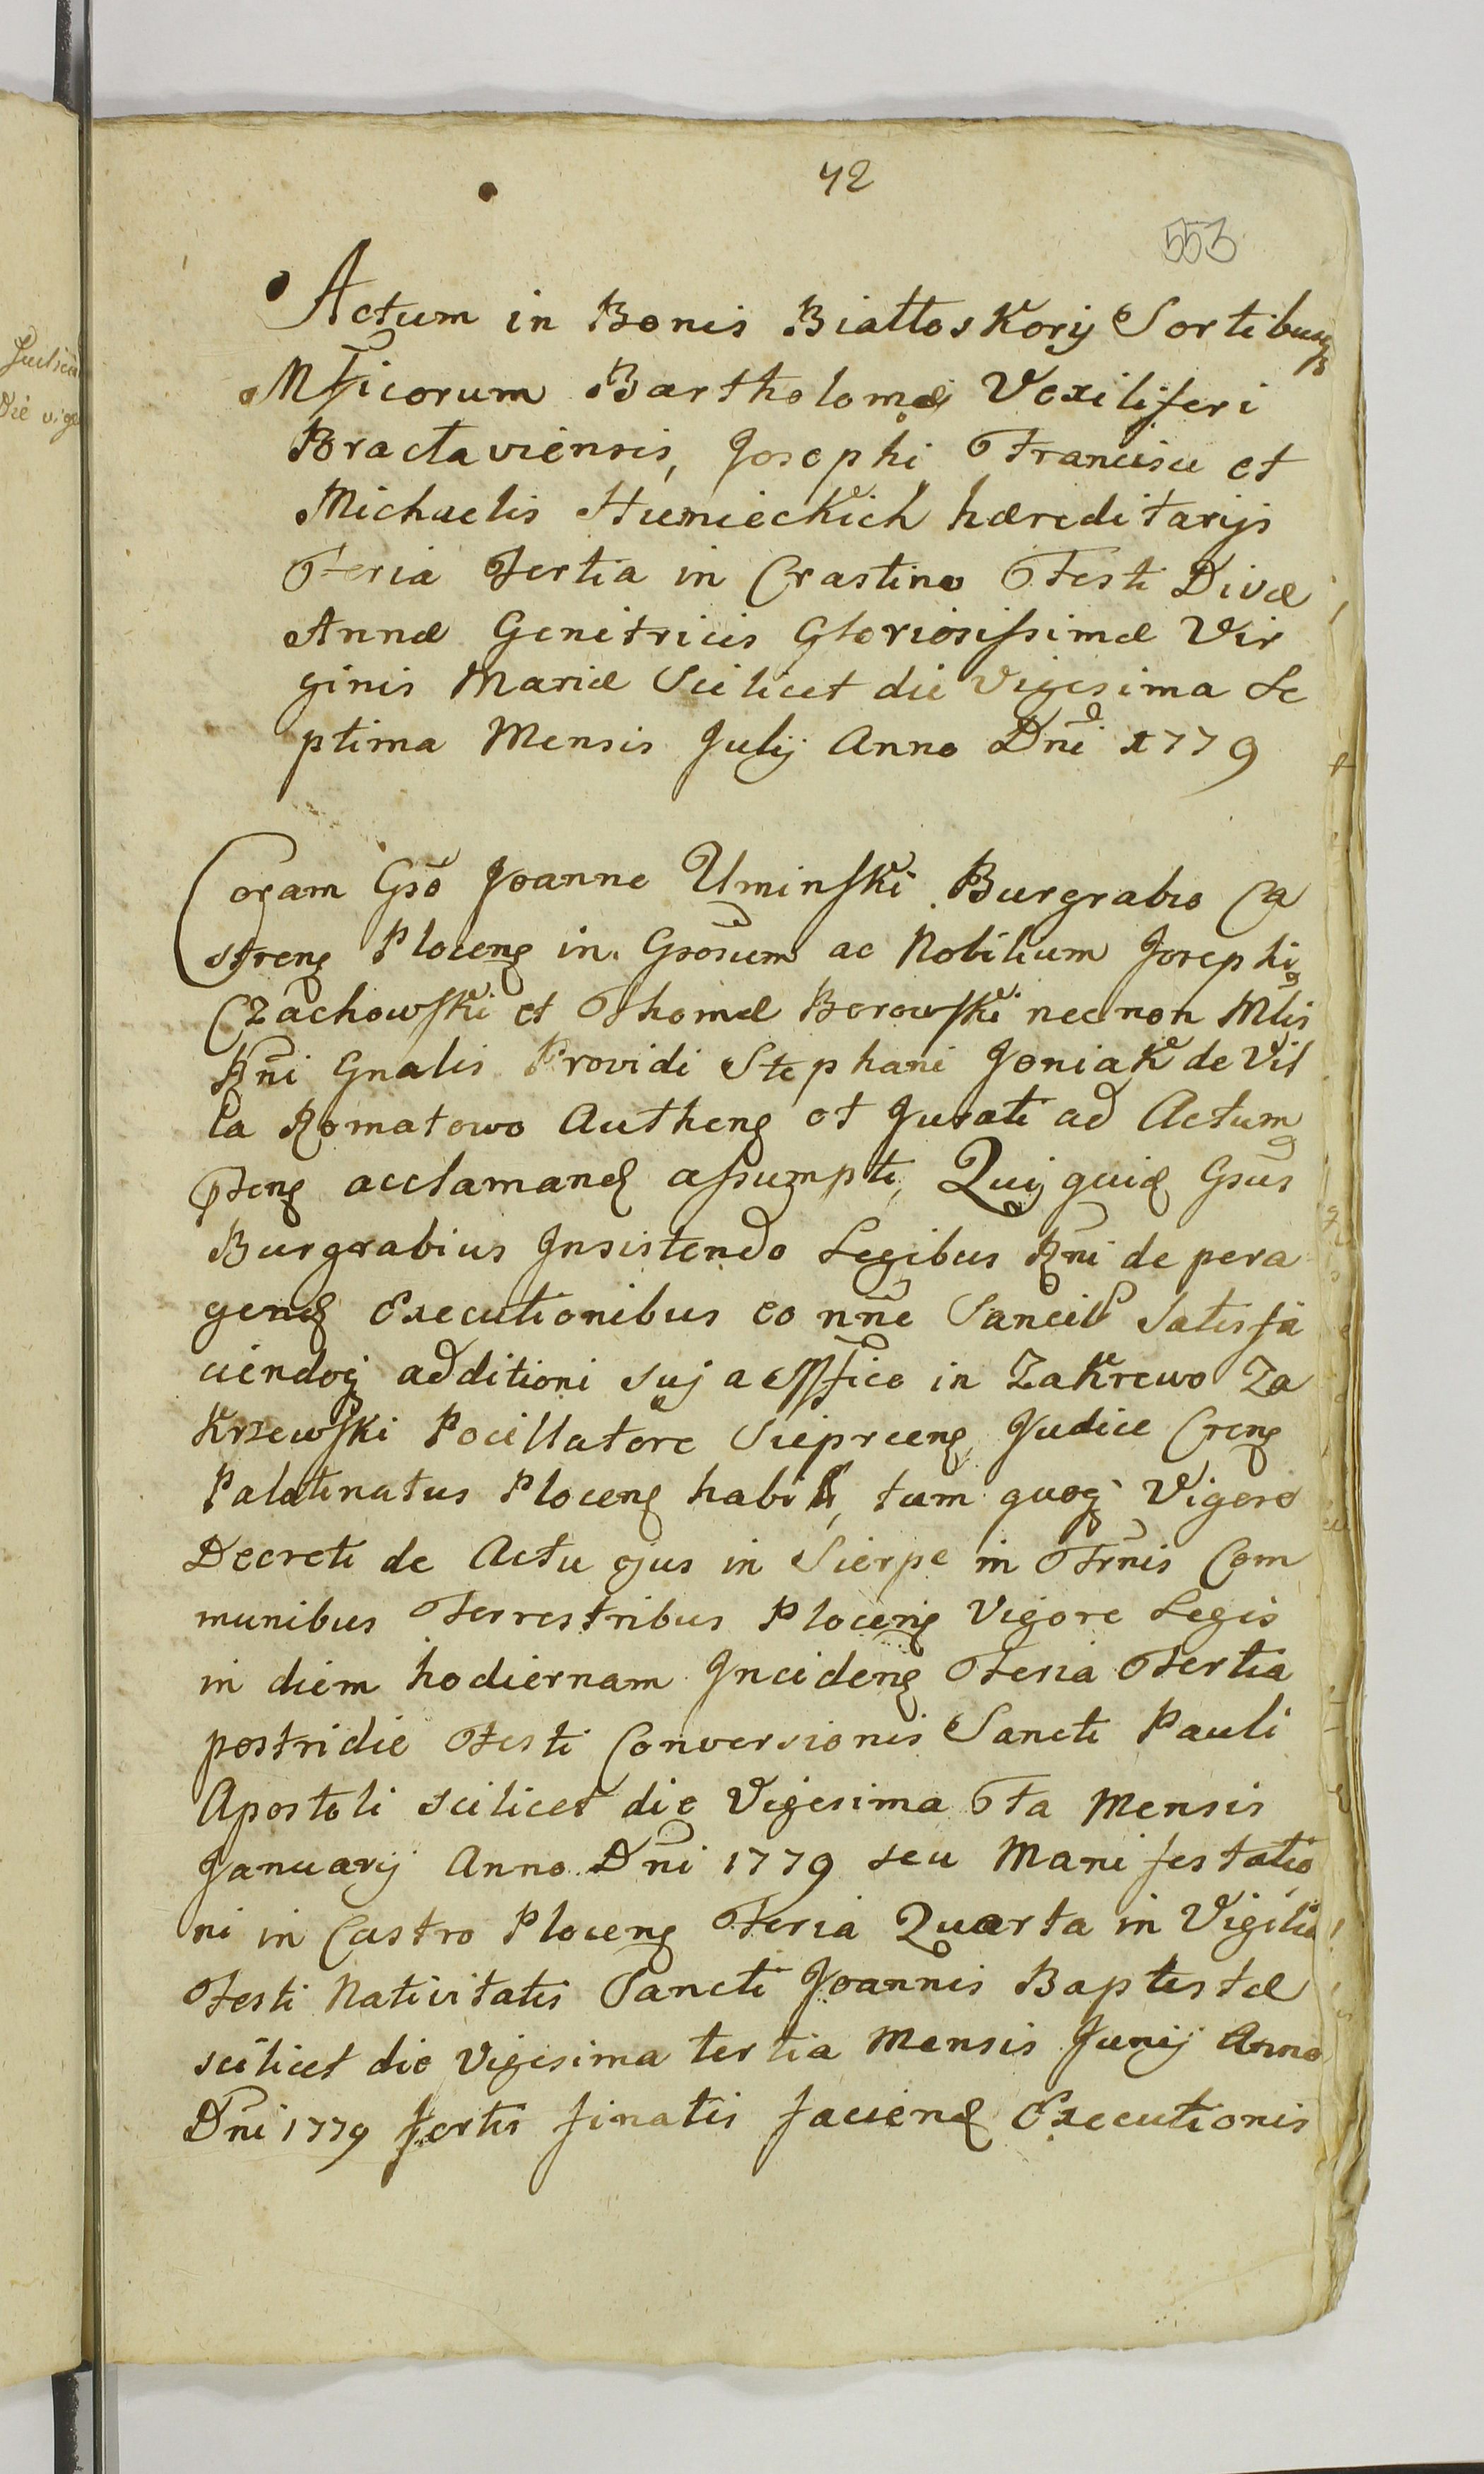 42
553
Actum in Bonis Białłoskory Sortibusq
Mficorum Bartholomæi Vexiliferi
Bractaviensis, Josephi Francisci et
Michaelis Humieckich hæreditarijs
Feria Tertia in Crastino Festi Divæ
Annæ Genitricis Gloriosissimæ Vir
ginis Mariæ Scilicet die Vigesima Se
ptima Mensis Julij Anno Dni 1779
Coram Gso Joanne Uminski Burgrabio Ca
streng Ploceng in Gsorum ac Nobilium Josephi
Czachowski et Thomæ Borowski nec non Mlis
Rni Gnalis Providi Stephani Joniak de Vil
la Romatowo Autheng et Jurati ad Actum
pteng acclamand assumpti, Quiquid Gsus
Burgrabius Insistendo Legibus Rni de pera
gend Executionibus eo nne Sancit Satisfa
ciendoq additioni suj a Mfico in Zakrewo Za
Krzewski Pocillatore Siepreeng Judice Creng
Palatinatus Ploceng habit, tum quoq Vigore
Decreti de Actu ejus in Sierpc in Trnis Com
munibus Terrestribus Ploceng Vigore Legis
in diem hodiernam Incideng Feria Tertia
postridie Festi Conversionis Sancti Pauli
Apostoli scilicet die Vigesima 6ta Mensis
Januarij Anno Dni 1779 seu Manifestatio
ni in Castro Ploceng Feria Quarta in Vigilia
Festi Nativitatis Sancti Joannis Baptistæ
scilicet die Vigesima tertia Mensis Junij Anno
Dni 1779 fertis finalis faciend Executionis